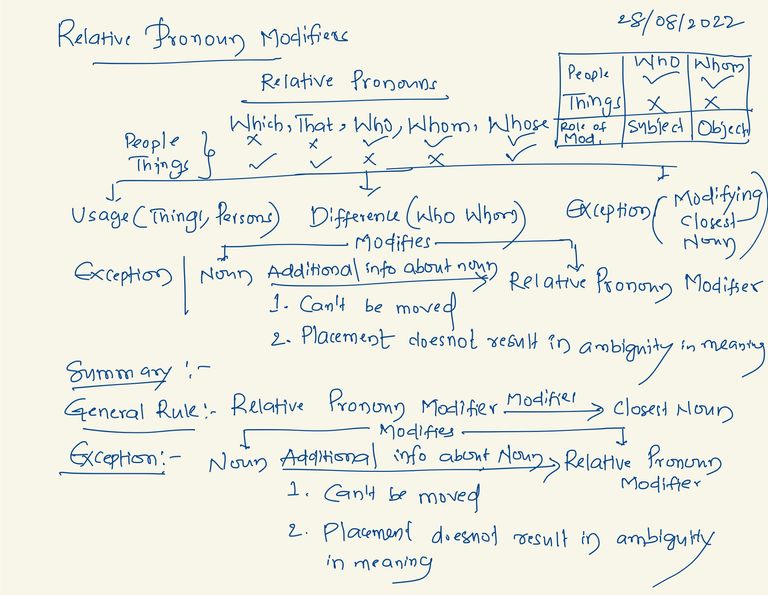 28/08/2022
Relative Pronoun Modifiers
Relative Pronouns
People Who ✓ Whom ✓
Things ✗ ✗
Role of Mod. Subject Object
Which, That, Who, Whom, Whose
People ✗ ✗ ✓ ✓ ✓
Things ✓ ✓ ✗ ✗ ✓
Usage (Things, Persons) Difference (Who Whom) Exception (Modifying
Closest
Noun)
Modifies
Exception | Noun Additional info about noun Relative Pronoun Modifier
1. Can't be moved
2. Placement doesnot result in ambiguity in meaning
Summary :-
General Rule:- Relative Pronoun Modifier Modifier Closest Noun
Modifies
Exception:- Noun Additional info about Noun Relative Pronoun
Modifier
1. Can't be moved
2. Placement doesnot result in ambiguity
in meaning